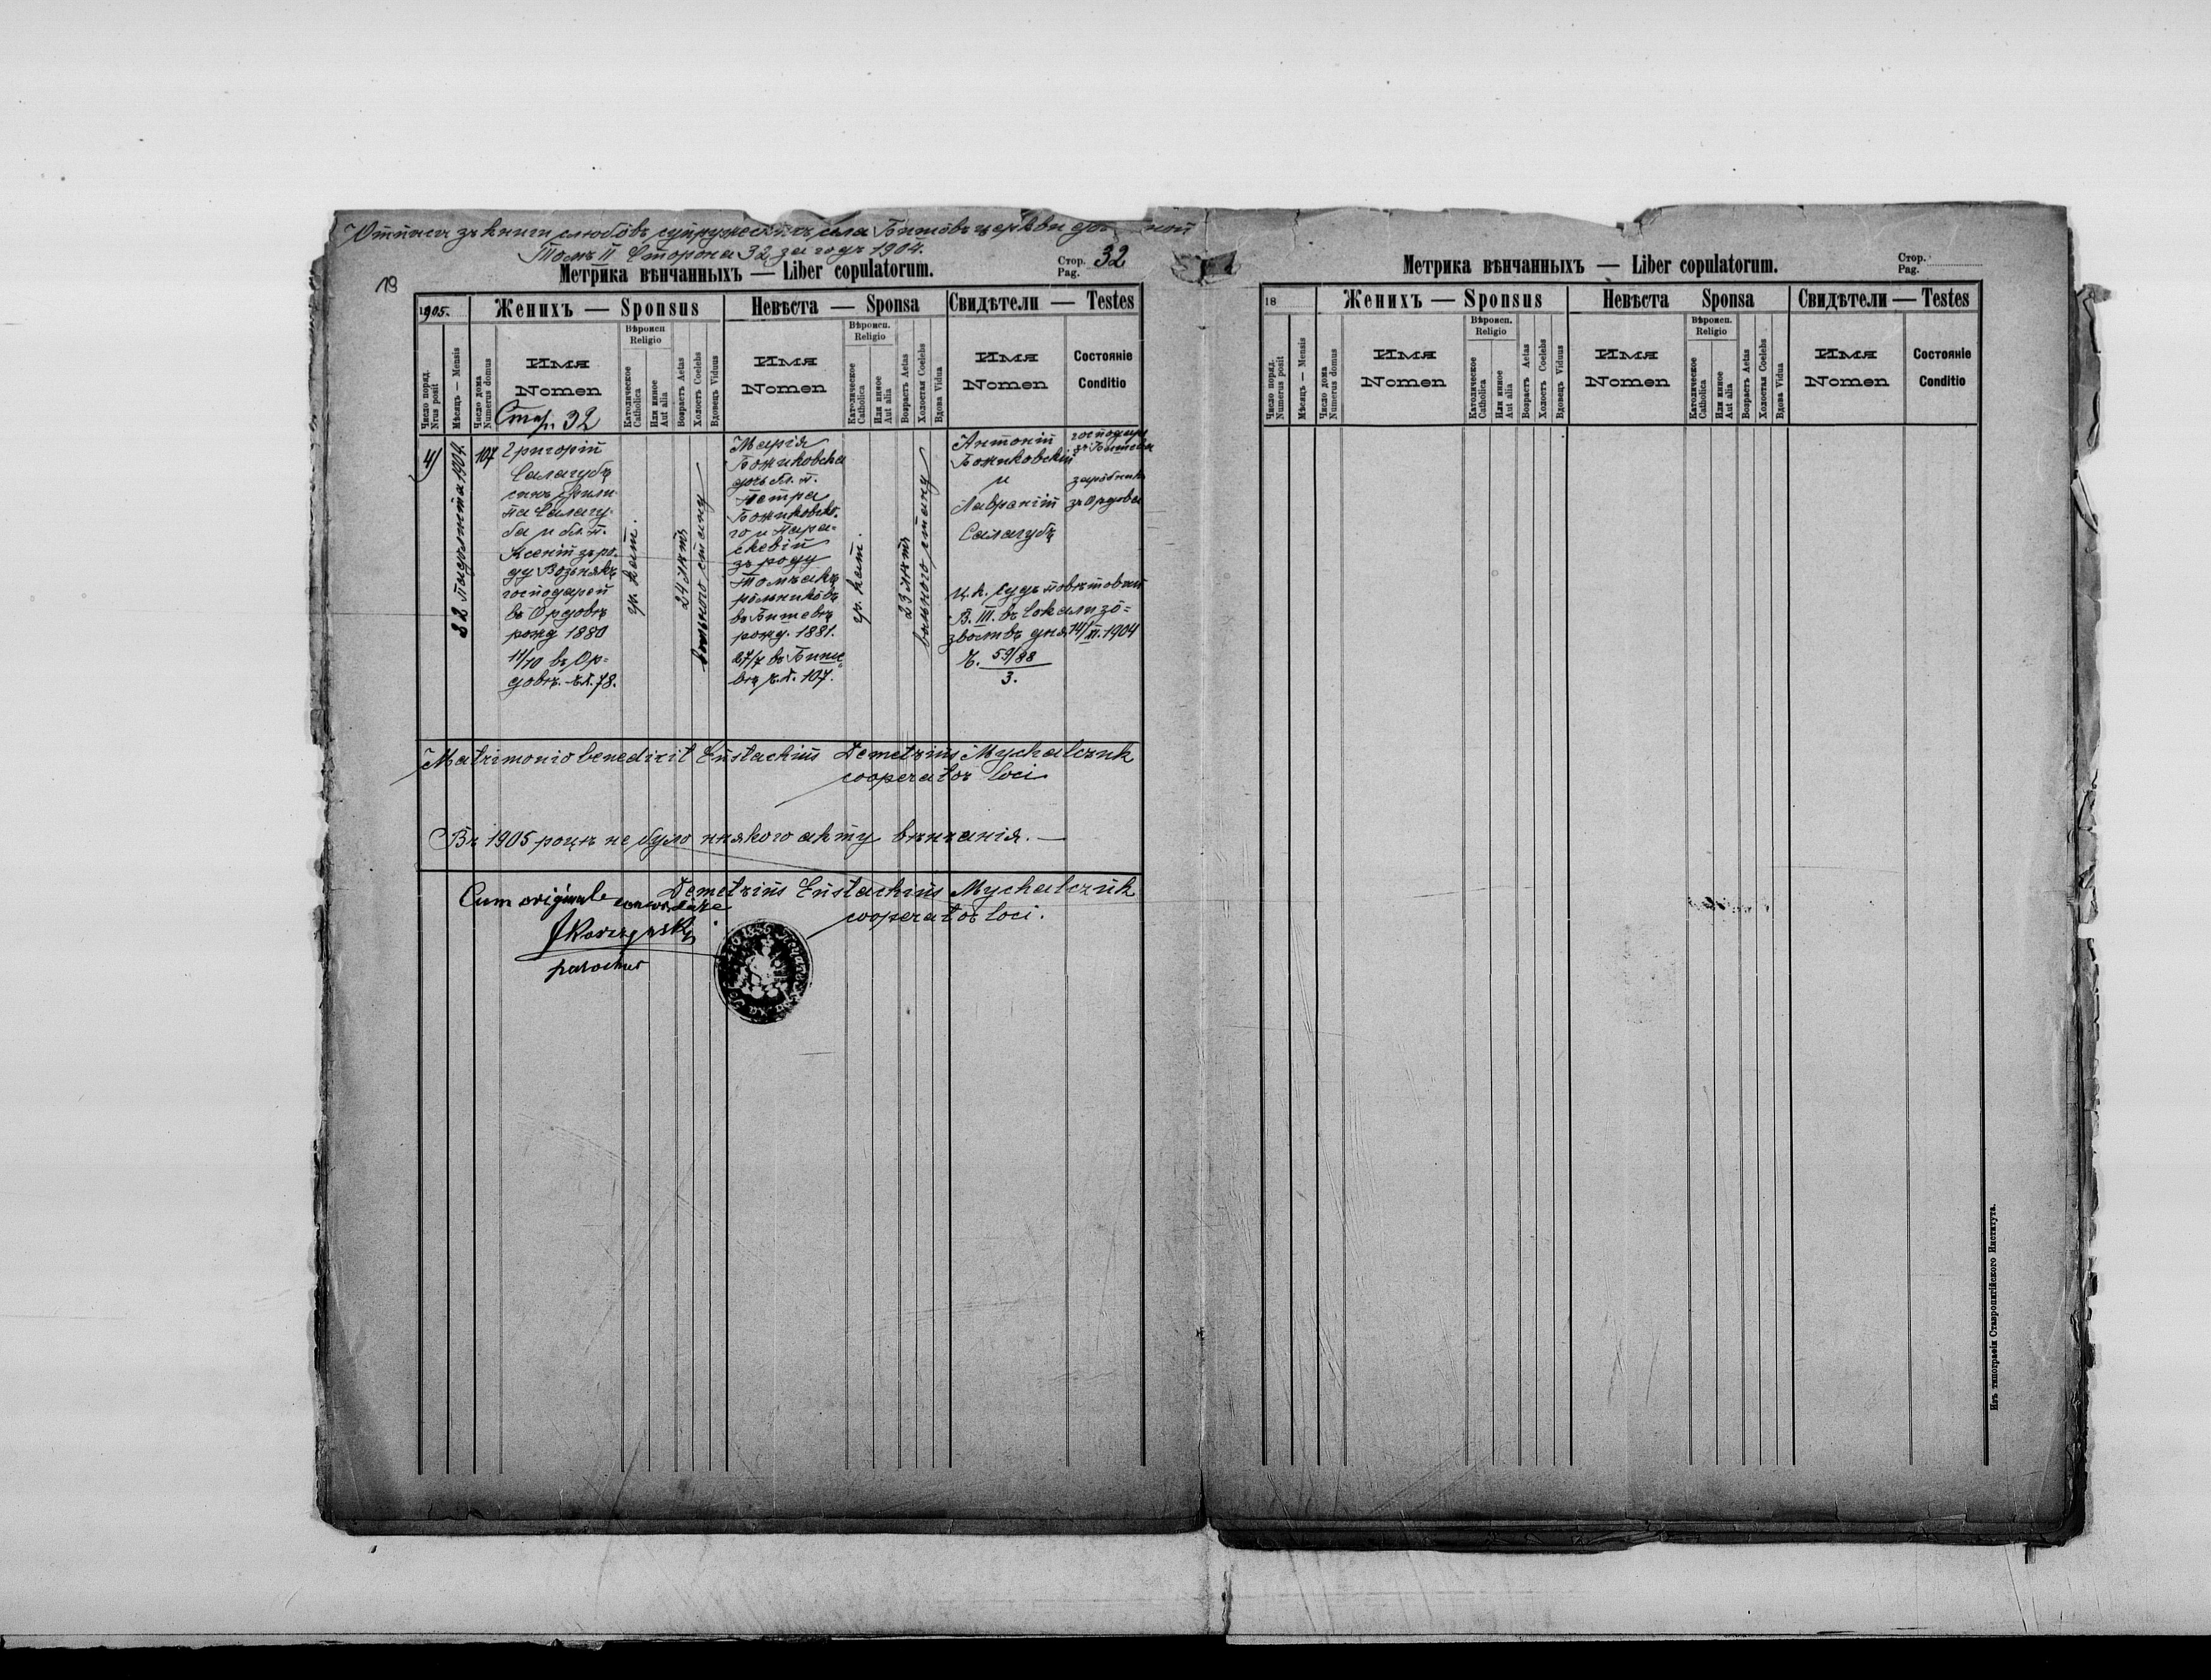 Отпись зъ книги слюбôвъ супружескихъ села Битôвъ церкви
Томъ II Сторона 32 за годъ 1904.
Метрика вѣнчанныхъ — Liber copulatorum.
Стор. 32
Pag.
19
1905.
Женихъ — Sponsus
Невѣста — Sponsa
Свидѣтели — Testes
Число поряд.
Nrus posit
Мѣсяцъ — Mensis
Число дома
Numerus domus
Имя
Nomen
Стор. 32
Вѣроисп.
Religio
Католическое
Catholica
Или инное
Aut alia
Возрастъ Aetas
Холостъ Coelebs
Вдовецъ Viduus
Имя
Nomen
Вѣроисп.
Religio
Католическое
Catholica
Или инное
Aut alia
Возрастъ Aetas
Холостая Coelebs
Вдова Vidua
Имя
Nomen
Состояніе
Conditio
4)
22 Падолиста 1904.
107
Григорій
Салагубъ
сынъ Фили-
па Салагу-
ба и бл. п.
Ксеніи зъ ро-
ду Возьнякъ
господарей
въ Ордовѣ
рожд 1880
11/10 въ Ор-
довѣ. ч.д. 78.
гр. кат.
24 лѣтъ
вольного стану
Марія
Божиковска
дочь бл. п.
Петра
Божиковско-
го и Пара-
скевіи
зъ роду
Томчакъ
рôльникôвъ
въ
рожд. 1881.
27/7 въ
ч.д. 107.
гр. кат.
23 лѣтъ
вольного стану
Антоній
Божиковскій
и
Лаврентій
Салагубъ
господарь
зъ
зарôбникъ
зъ Ордова
ц. к. Судъ повѣтовый
В. III. въ Сокали зô=
зволивъ дня 14/XI. 1904
Ч. 59/88
3.
Matrimonio benedixit Eustachius Demetrius Mychalczuk
cooperator loci
Въ 1905 роцѣ не було ніякого акту вѣнчанія. —
Demetrius Eustachius Mychalczuk
cooperator loci.
Cum originale concordare
parochus
Метрика вѣнчанныхъ — Liber copulatorum.
Стор.
Pag.
18
Женихъ — Sponsus
Невѣста Sponsa
Свидѣтели — Testes
Число поряд.
Numerus posit
Мѣсяцъ — Mensis
Число дома
Numerus domus
Имя
Nomen
Вѣроисп.
Religio
Католическое
Catholica
Или инное
Aut alia
Возрастъ Aetas
Холостъ Coelebs
Вдовецъ Viduus
Имя
Nomen
Вѣроисп.
Religio
Католическое
Catholica
Или инное
Aut alia
Возрастъ Aetas
Холостая Coelebs
Вдова Vidua
Имя
Nomen
Состояніе
Conditio
Изъ типографіи Ставропигійского Института.